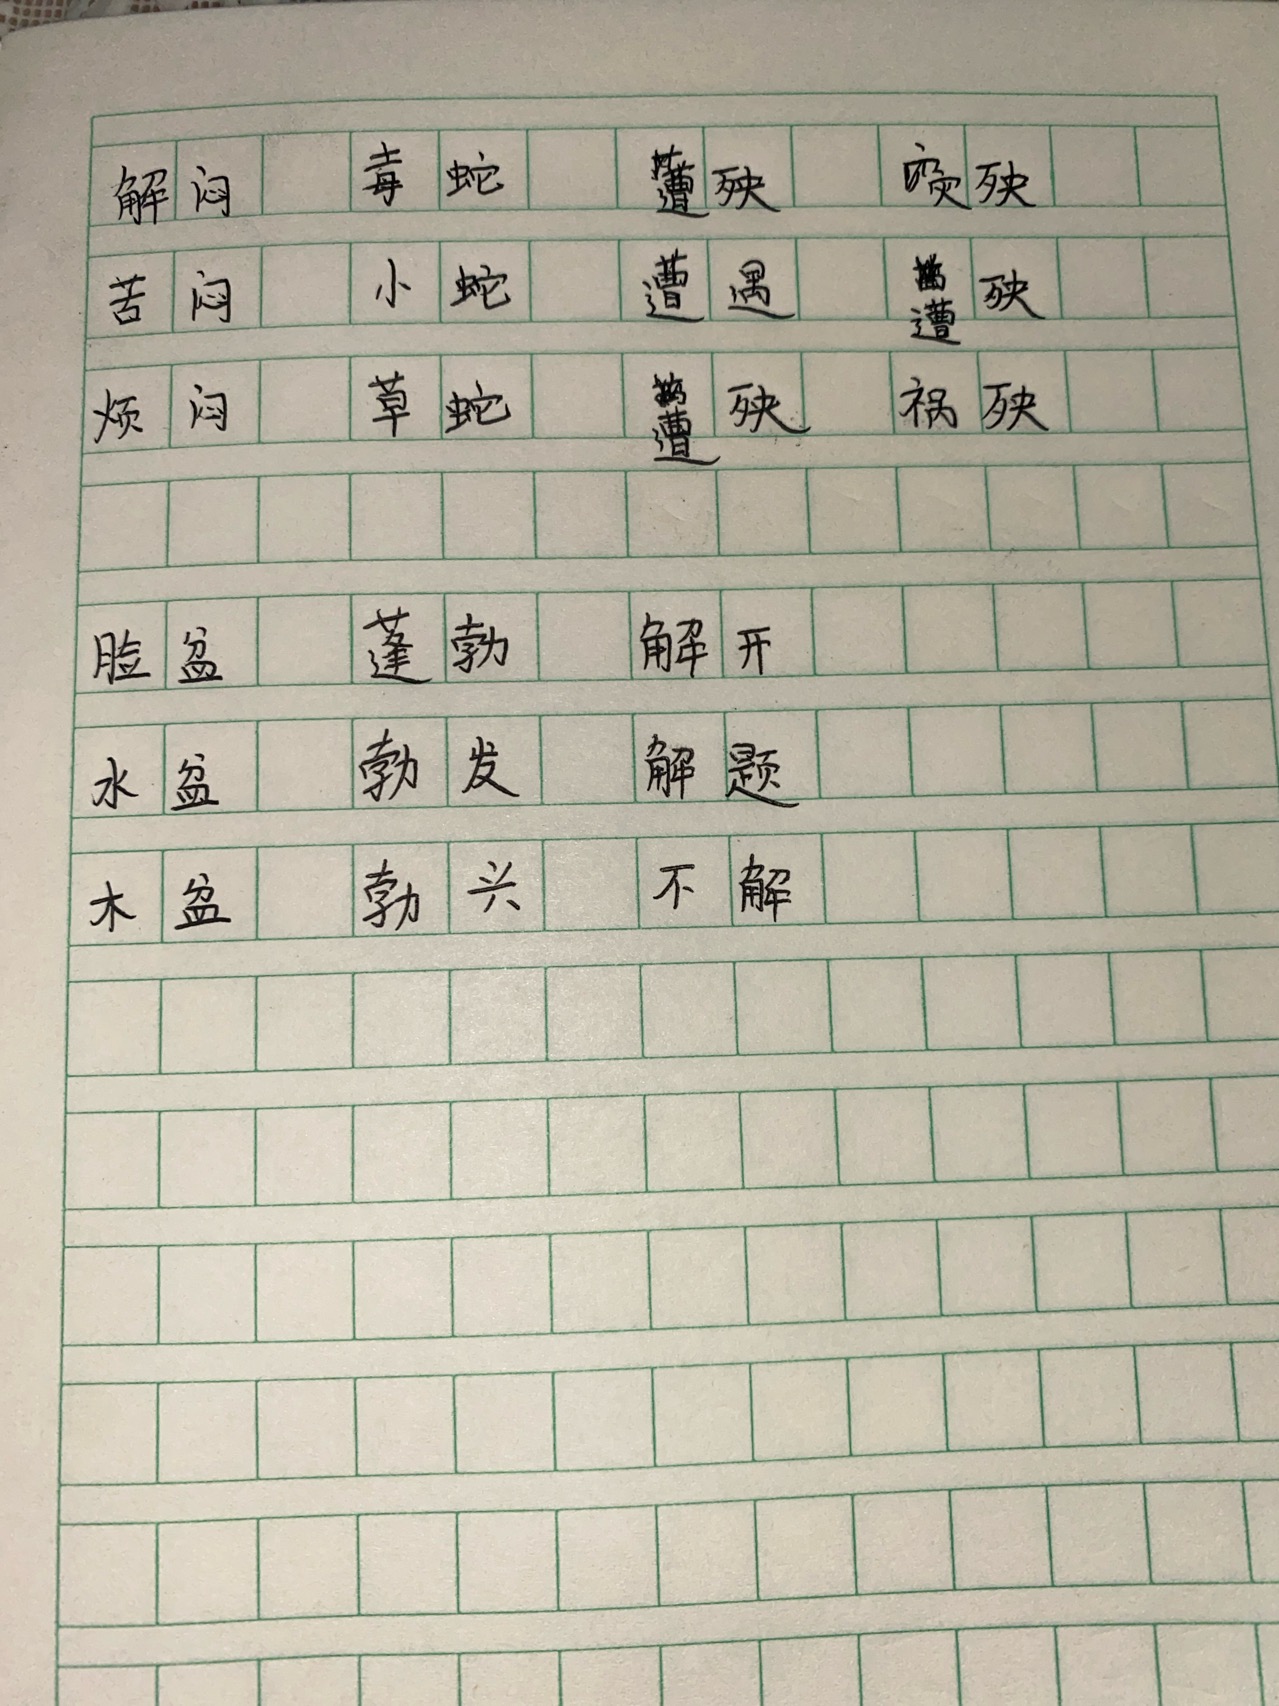 解闷 毒蛇 遭殃 灾殃
苦闷 小蛇 遭遇 遭殃
烦闷 草蛇 遭殃 祸殃
脸盆 蓬勃 解开
水盆 勃发 解题
木盆 勃兴 不解